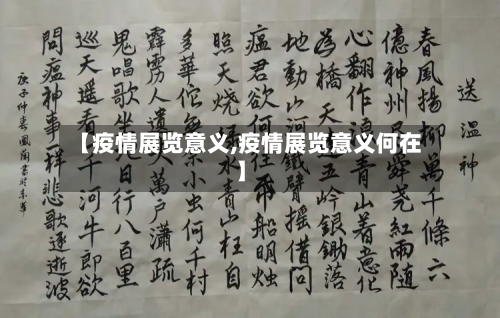 【疫情展览意义,疫情展览意义何在
】
送温神
春風揚柳萬千條六
億神州舜堯紅雨隨
心翻作浪青山着意化
為橋天連五岭銀鋤落
地動山河鐵臂摇借問
瘟君欲何往船明烛
照天燒水青山枉自
多華佗奈小虫何千村
霹雳人遺萬户瀟疏
鬼唱歌坐地日行八百里
巡天遥看千河牛郎欲
問瘟神事一样悲歌逐逝波
庚子仲春風蘭書